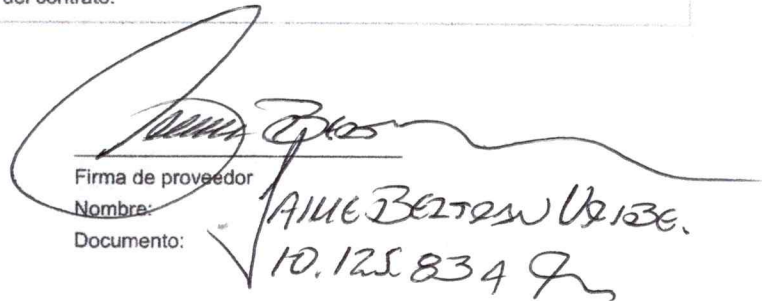 del contrato.
Firma de proveedor
Nombre: JAIME BELTRAN URIBE.
Documento: 10.125.834